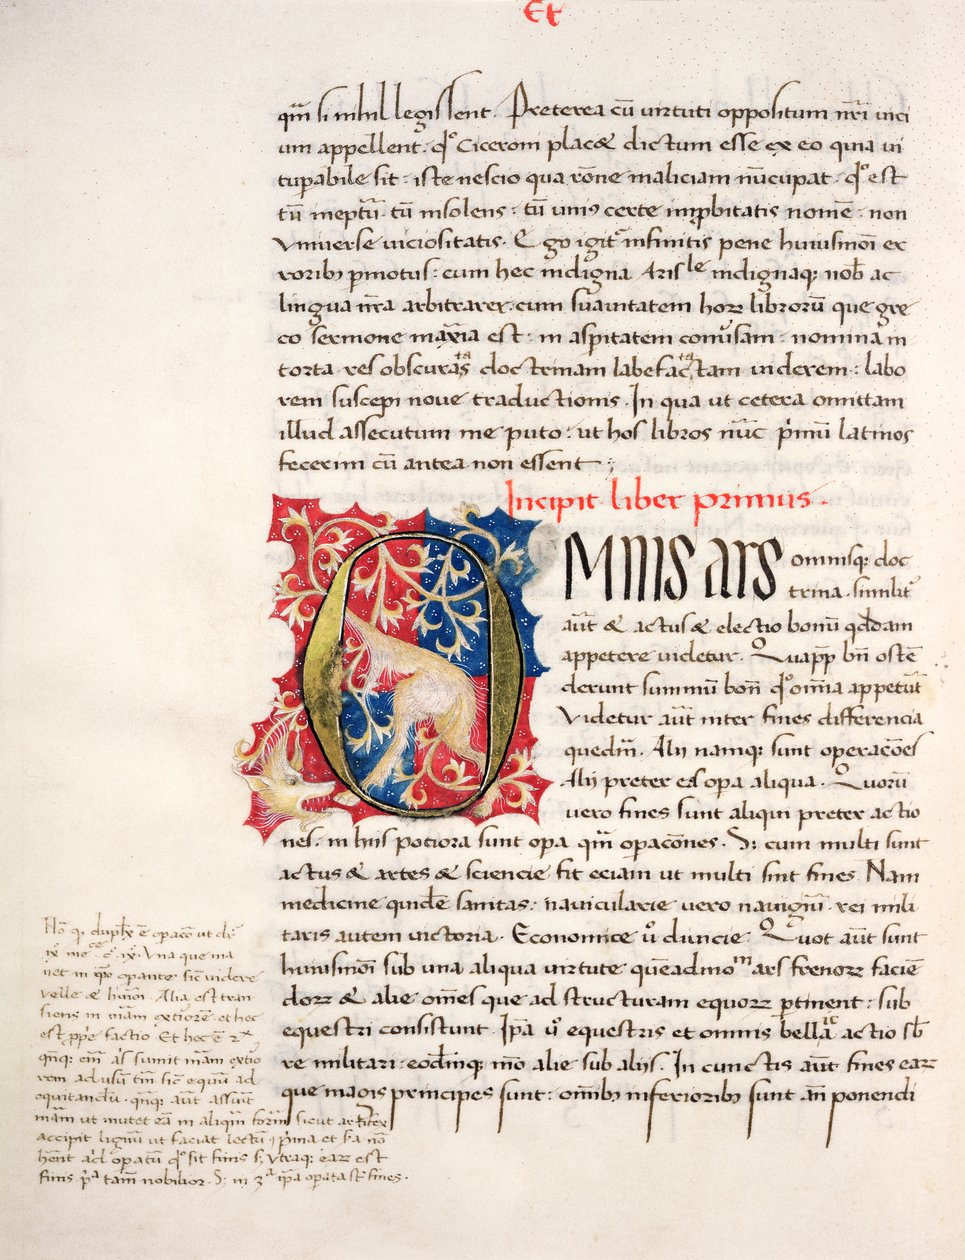 Et
qm̄ si nihil legissent. Preterea cū virtuti oppositum nr̄i vici
um appellent. qͦ Ciceroni placꝫ dictum esse ex eo quia vi
tuꝑabile sit: iste nescio qua rōne maliciam nūcupat. qͦ est
tū ineptū. tū insolens: tū uniꝰ certe imꝓbitatis nomē: non
Vniverse viciositatis. Ego igit̄ infinitis pene huiusmōi er
roribꝫ ꝑmotus: cum hec indigna Arisle indignaqꝫ nob̄ ac
lingua nr̄a arbitrarer: cum suavitatem horꝝ librorū que gre
co sermone maxīa est: in asꝑitatem conv̄sam: nomina in
torta res obscuratas doctrinam labefactatam viderem: labo
rem suscepi nove traductionis. In qua ut cetera omittam
illud assecutum me puto: ut hos libros nūc p̄mū latinos
fecerim cū antea non essent:
Incipit liber primus.
OMNIS ARS omnisqꝫ doc
trina. similit̄
aūt & actus & electio bonū qd̄dam
appetere videtur. Quapp̄ bn̄ ostē
derunt summū bon̄ qͦ om̄ia appetūt
Videtur aūt inter fines differencia
quedm̄. Alii namqꝫ sunt operacōēs
Alii preter eas oꝑa aliqua. Quorū
vero fines sunt aliqui preter actio
nes. in hiis potiora sunt oꝑa qm̄ oꝑacōnes. Sꝫ cum multi sunt
actus & artes & sciencie fit eciam ut multi sint fines Nam
medicine quidē sanitas: navicularie vero navigiū. rei mili
taris autem victoria. Economice v̄o divicie. Quot aūt sunt
huiusmōi sub una aliqua virtute quēadmom ars frenorꝝ faciē
dorꝝ & alie om̄es que ad structuram equorꝝ ꝑtinent: sub
equestri consistunt. Ip̄a v̄o equestris et omnis bellica actio sb̄
re militari: eodēmqꝫ mōo alie sub aliis. In cunctis aūt fines earꝝ
que magis principes sunt: omībꝫ inferioribꝫ sunt an̄ponendi
velle & hm̄oi. Alia est tran
siens in mām extiorē et hec
est ꝓp̄e factio Et hec ē 2x
qn̄qꝫ em̄ ars sumit mām extio
rem ad usū tm̄ sic equū ad
equitandū. qn̄qꝫ aūt assūit
mām ut mutet eā in aliqm̄ form̄ sicut artifex
accipit lignū ut faciat lectū p̄ma et sa nō
hēnt ad oꝑatū qͦ sit finis sꝫ utraqꝫ earꝝ est
finis. pa tam̄ nobilior. Sꝫ in 3a ip̄a oꝑata st̄ fines.